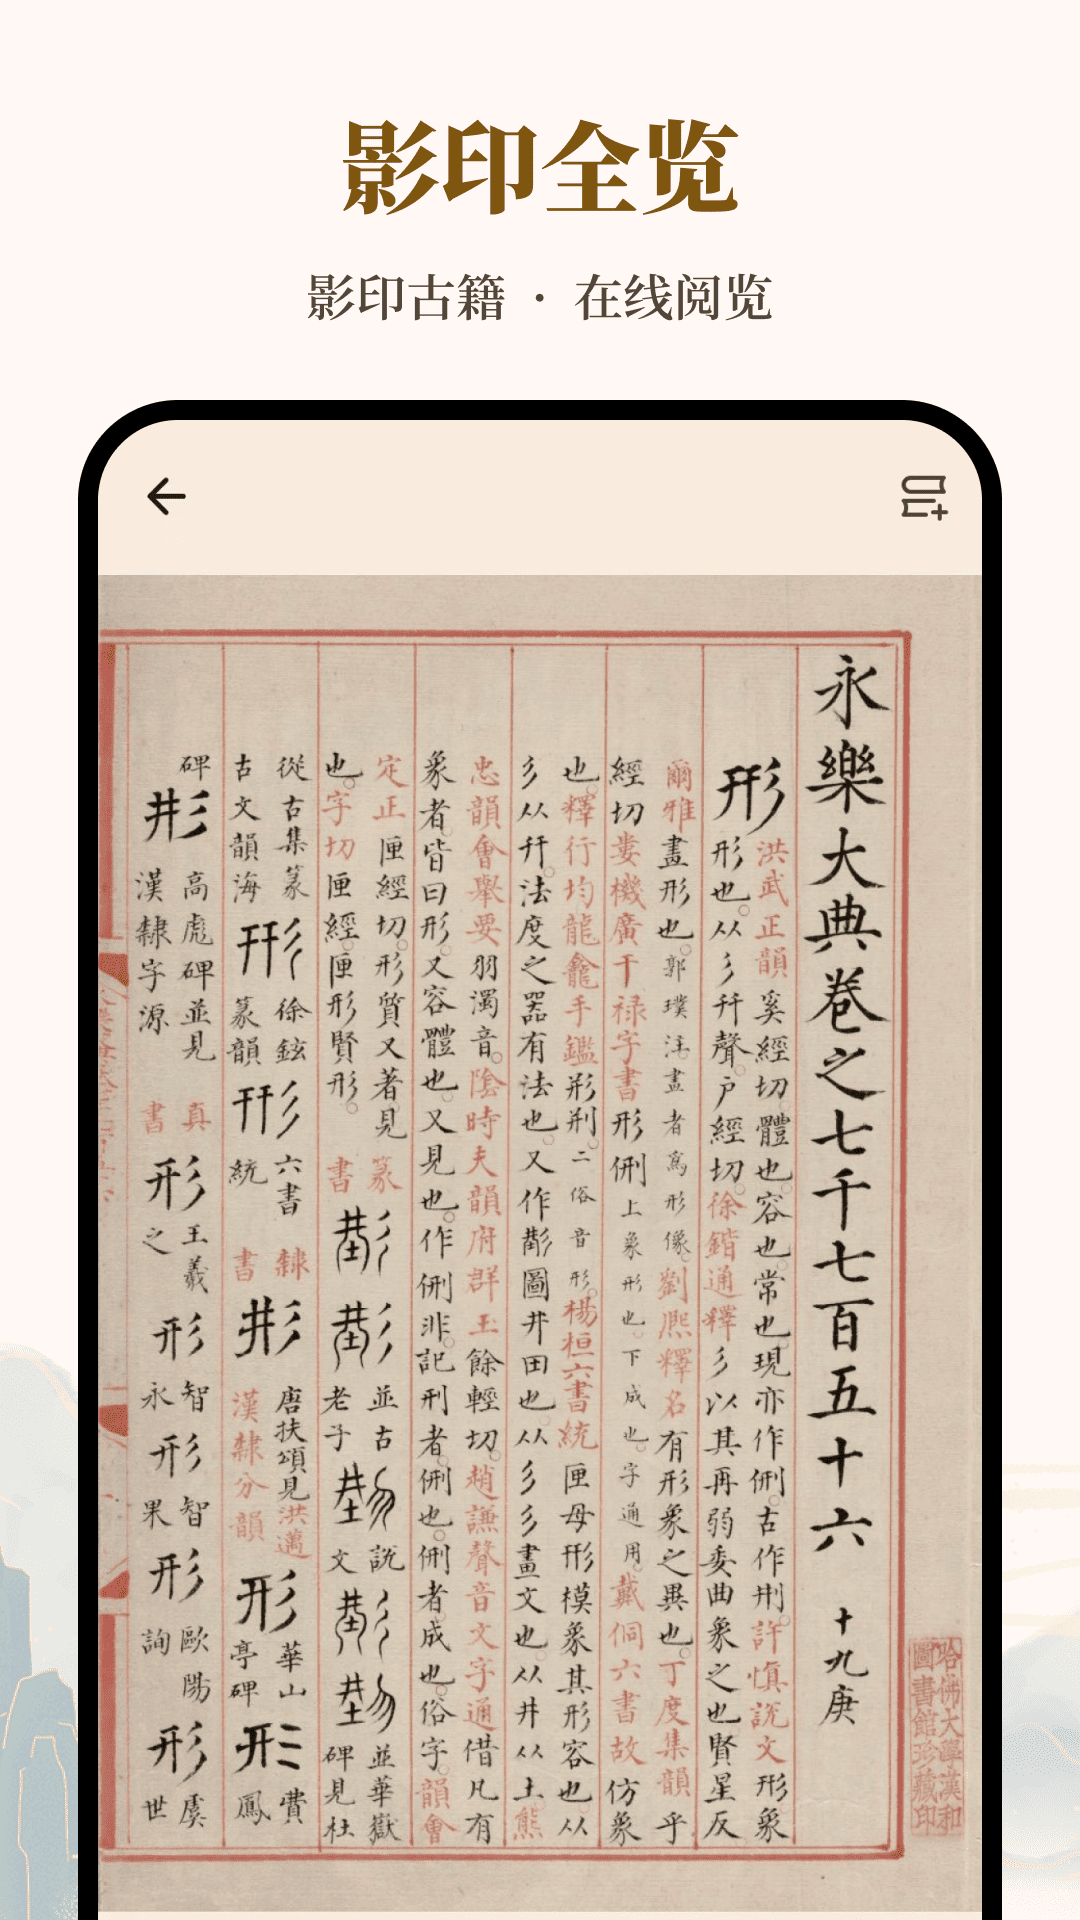 影印全览
影印古籍 · 在线阅览
永樂大典卷之七千七百五十六 十九庚
形
洪武正韻奚經切體也容也常也現亦作侀古作㓝許慎説文形象
形也。从彡幵聲。戶經切。徐鍇通釋彡以其再弱委曲象之也賢星反
爾雅畫形也。郭璞注畫者爲形像。劉熙釋名有形象之異也。丁度集韻乎
經切婁機廣干禄字書形侀上象形也。下成也。字通用。戴侗六書故仿象
也。釋行均龍龕手鑑形㓝。二俗音形。楊桓六書統匣母形模象其形容也。从
彡从幵。法度之器有法也。又作圖井田也。从彡彡畫文也。从井从土熊
忠韻會舉要羽濁音。陰時夫韻府群玉餘輕切。趙謙聲音文字通借凡有
象者。皆曰形。又容體也。又見也。作侀非。記刑者。侀也。侀者。成也。俗字。韻會
定正匣經切。形質又著見
也。字切匣經。匣形賢形。
篆書
並古老子
説文
並華嶽碑見杜
從古集篆古文韻海
徐鉉篆韻
六書統
隸書
形
唐扶頌見洪邁漢隸分韻
形
華山亭碑
形
費鳳
碑
形
高彪碑並見漢隸字源
真書
形
王羲之
形
智永
形
智果
形
歐陽詢
形
虞世
哈佛大學漢和圖書館珍藏印